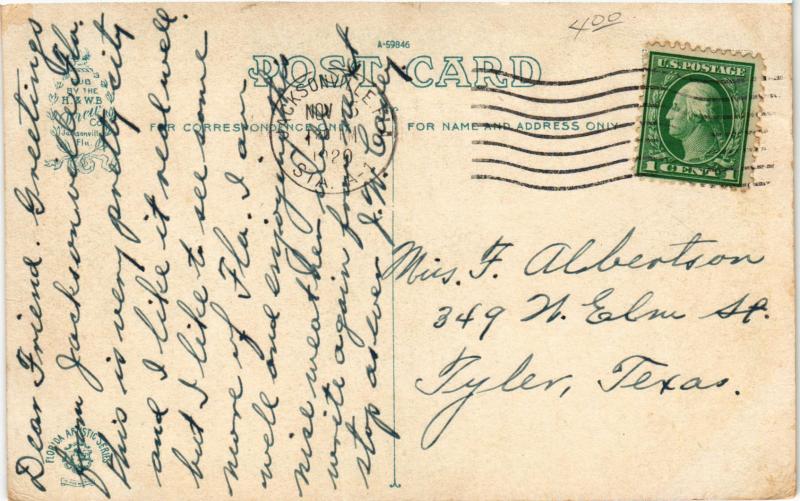 400
A-59846
POST CARD
PUB
BY THE
H.& W.B.
Drew
Co.
Jacksonville
Fla.
JACKSONVILLE, FLA.
NOV
1920
STA.
U.S. POSTAGE
1 CENT 1
FOR CORRESPONDENCE ONLY
FOR NAME AND ADDRESS ONLY
Dear Friend. Greetings
from Jacksonville Fla.
this is very pretty city
and I like it real well.
but I like to see some
more of Fla. I am
well and enjoying this
nise weather. I
write again from next
stop as ever J. W.
Miss. F. Albertson
349 N. Elm St.
Tyler, Texas.
FLORIDA ARTISTIC SERIES